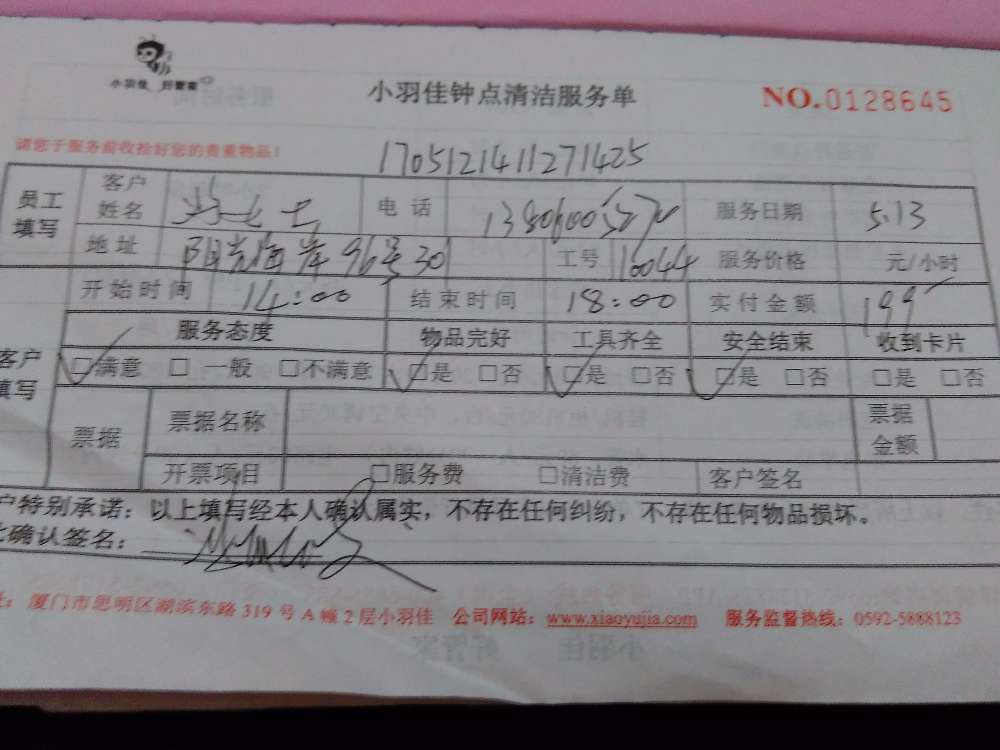 小羽佳 好管家
小羽佳钟点清洁服务单 NO.0128645
请您于服务前收拾好您的贵重物品！
1705121411271425
员工填写 客户姓名 女士 电话 服务日期 5.13
地址 阳光海岸96号301 工号 16044 服务价格 元/小时
开始时间 14:00 结束时间 18:00 实付金额 199
服务态度 物品完好 工具齐全 安全结束 收到卡片
客户填写 □满意 □一般 □不满意 □是 □否 □是 □否 □是 □否 □是 □否
票据 票据名称 票据金额
开票项目 □服务费 □清洁费 客户签名
户特别承诺：以上填写经本人确认属实，不存在任何纠纷，不存在任何物品损坏。
确认签名：
厦门市思明区湖滨东路319号A幢2层小羽佳 公司网站：www.xiaoyujia.com 服务监督热线：0592-5888123